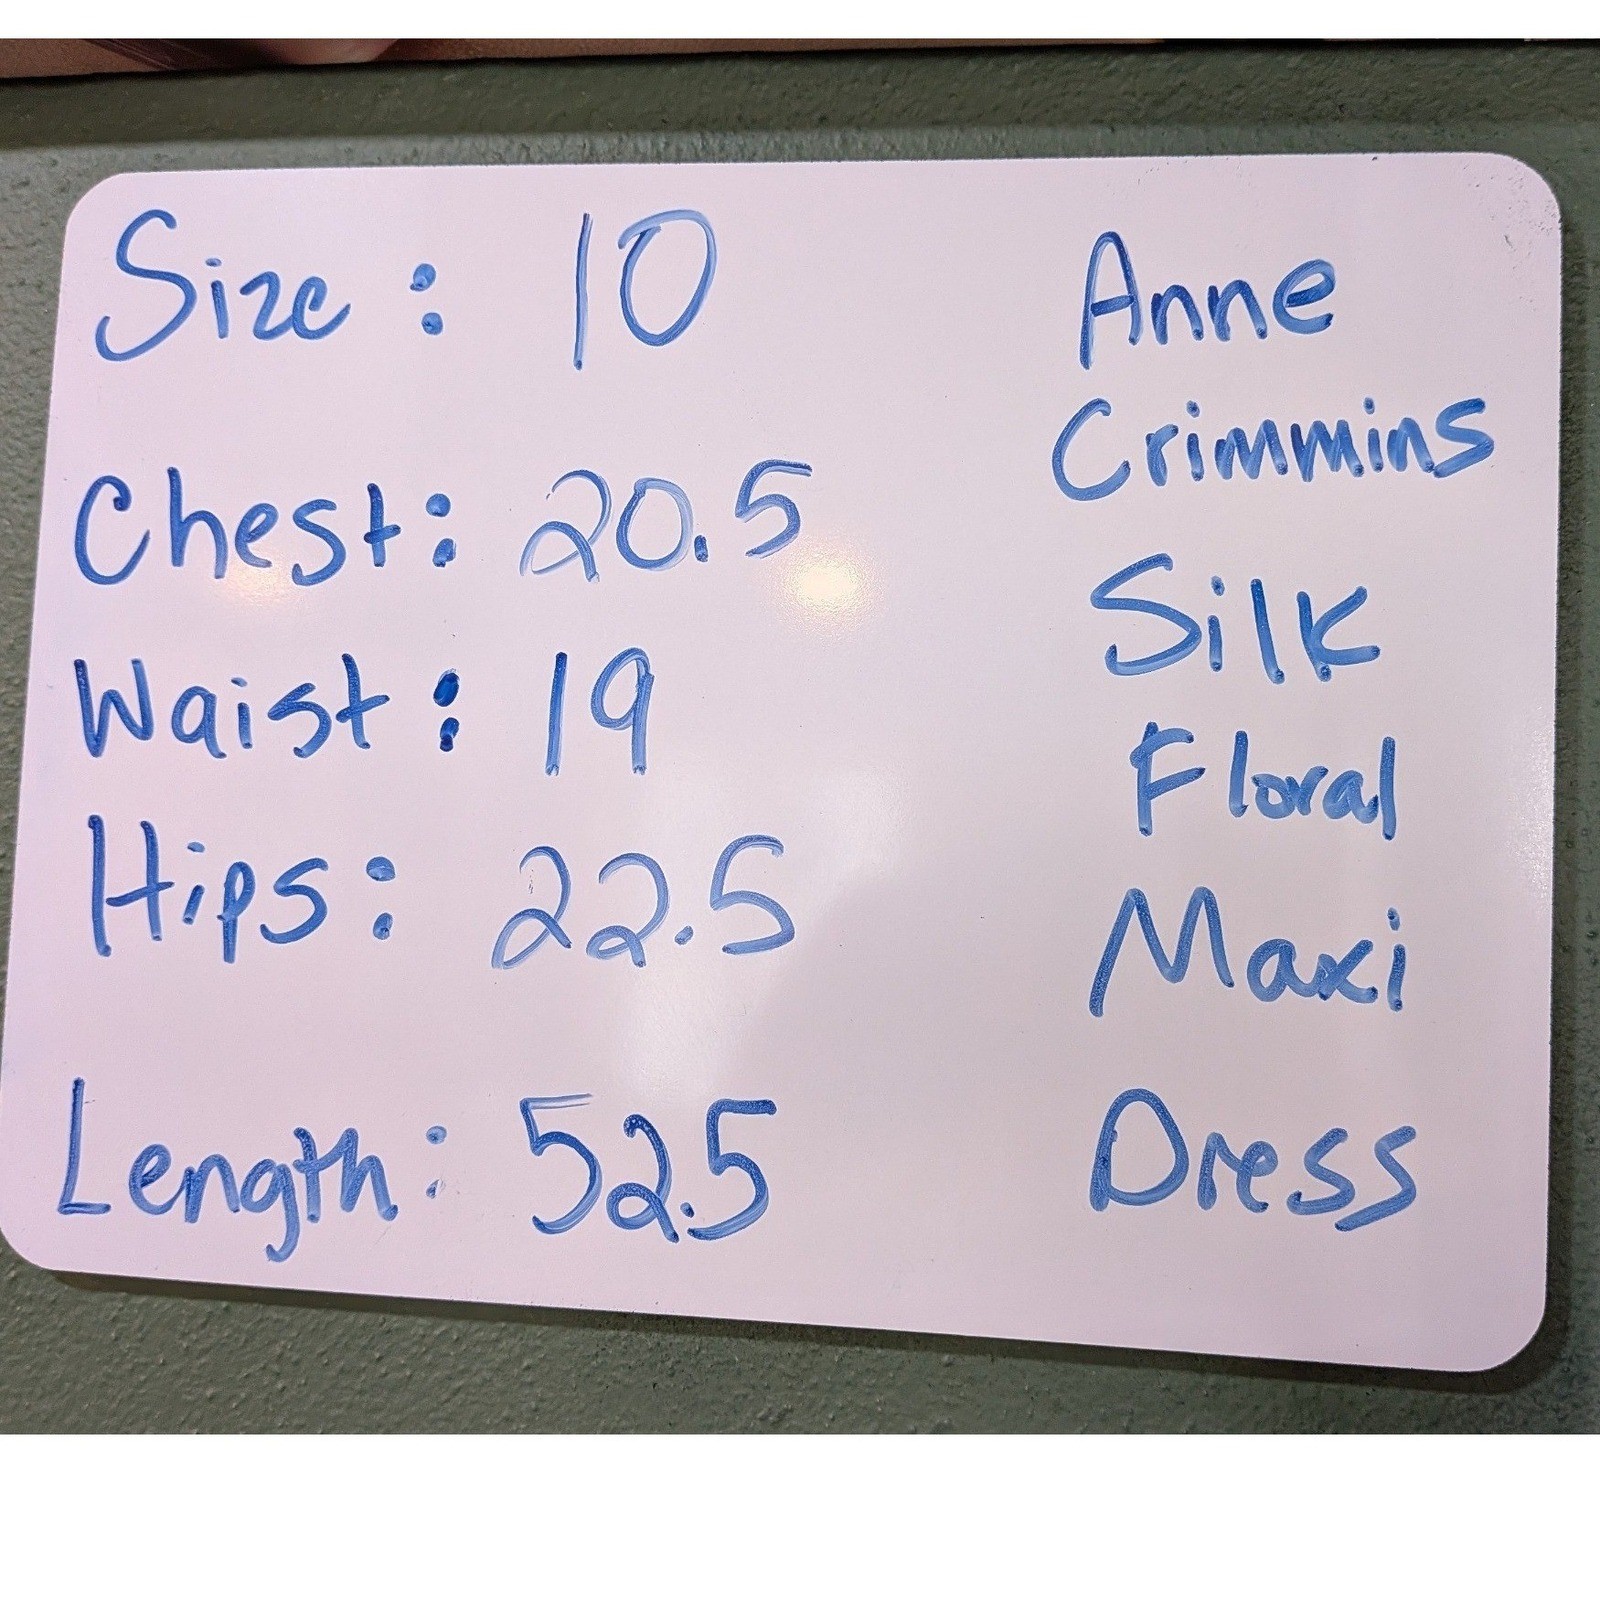 Size: 10
Chest: 20.5
Waist: 19
Hips: 22.5
Length: 52.5
Anne
Crimmins
Silk
Floral
Maxi
Dress